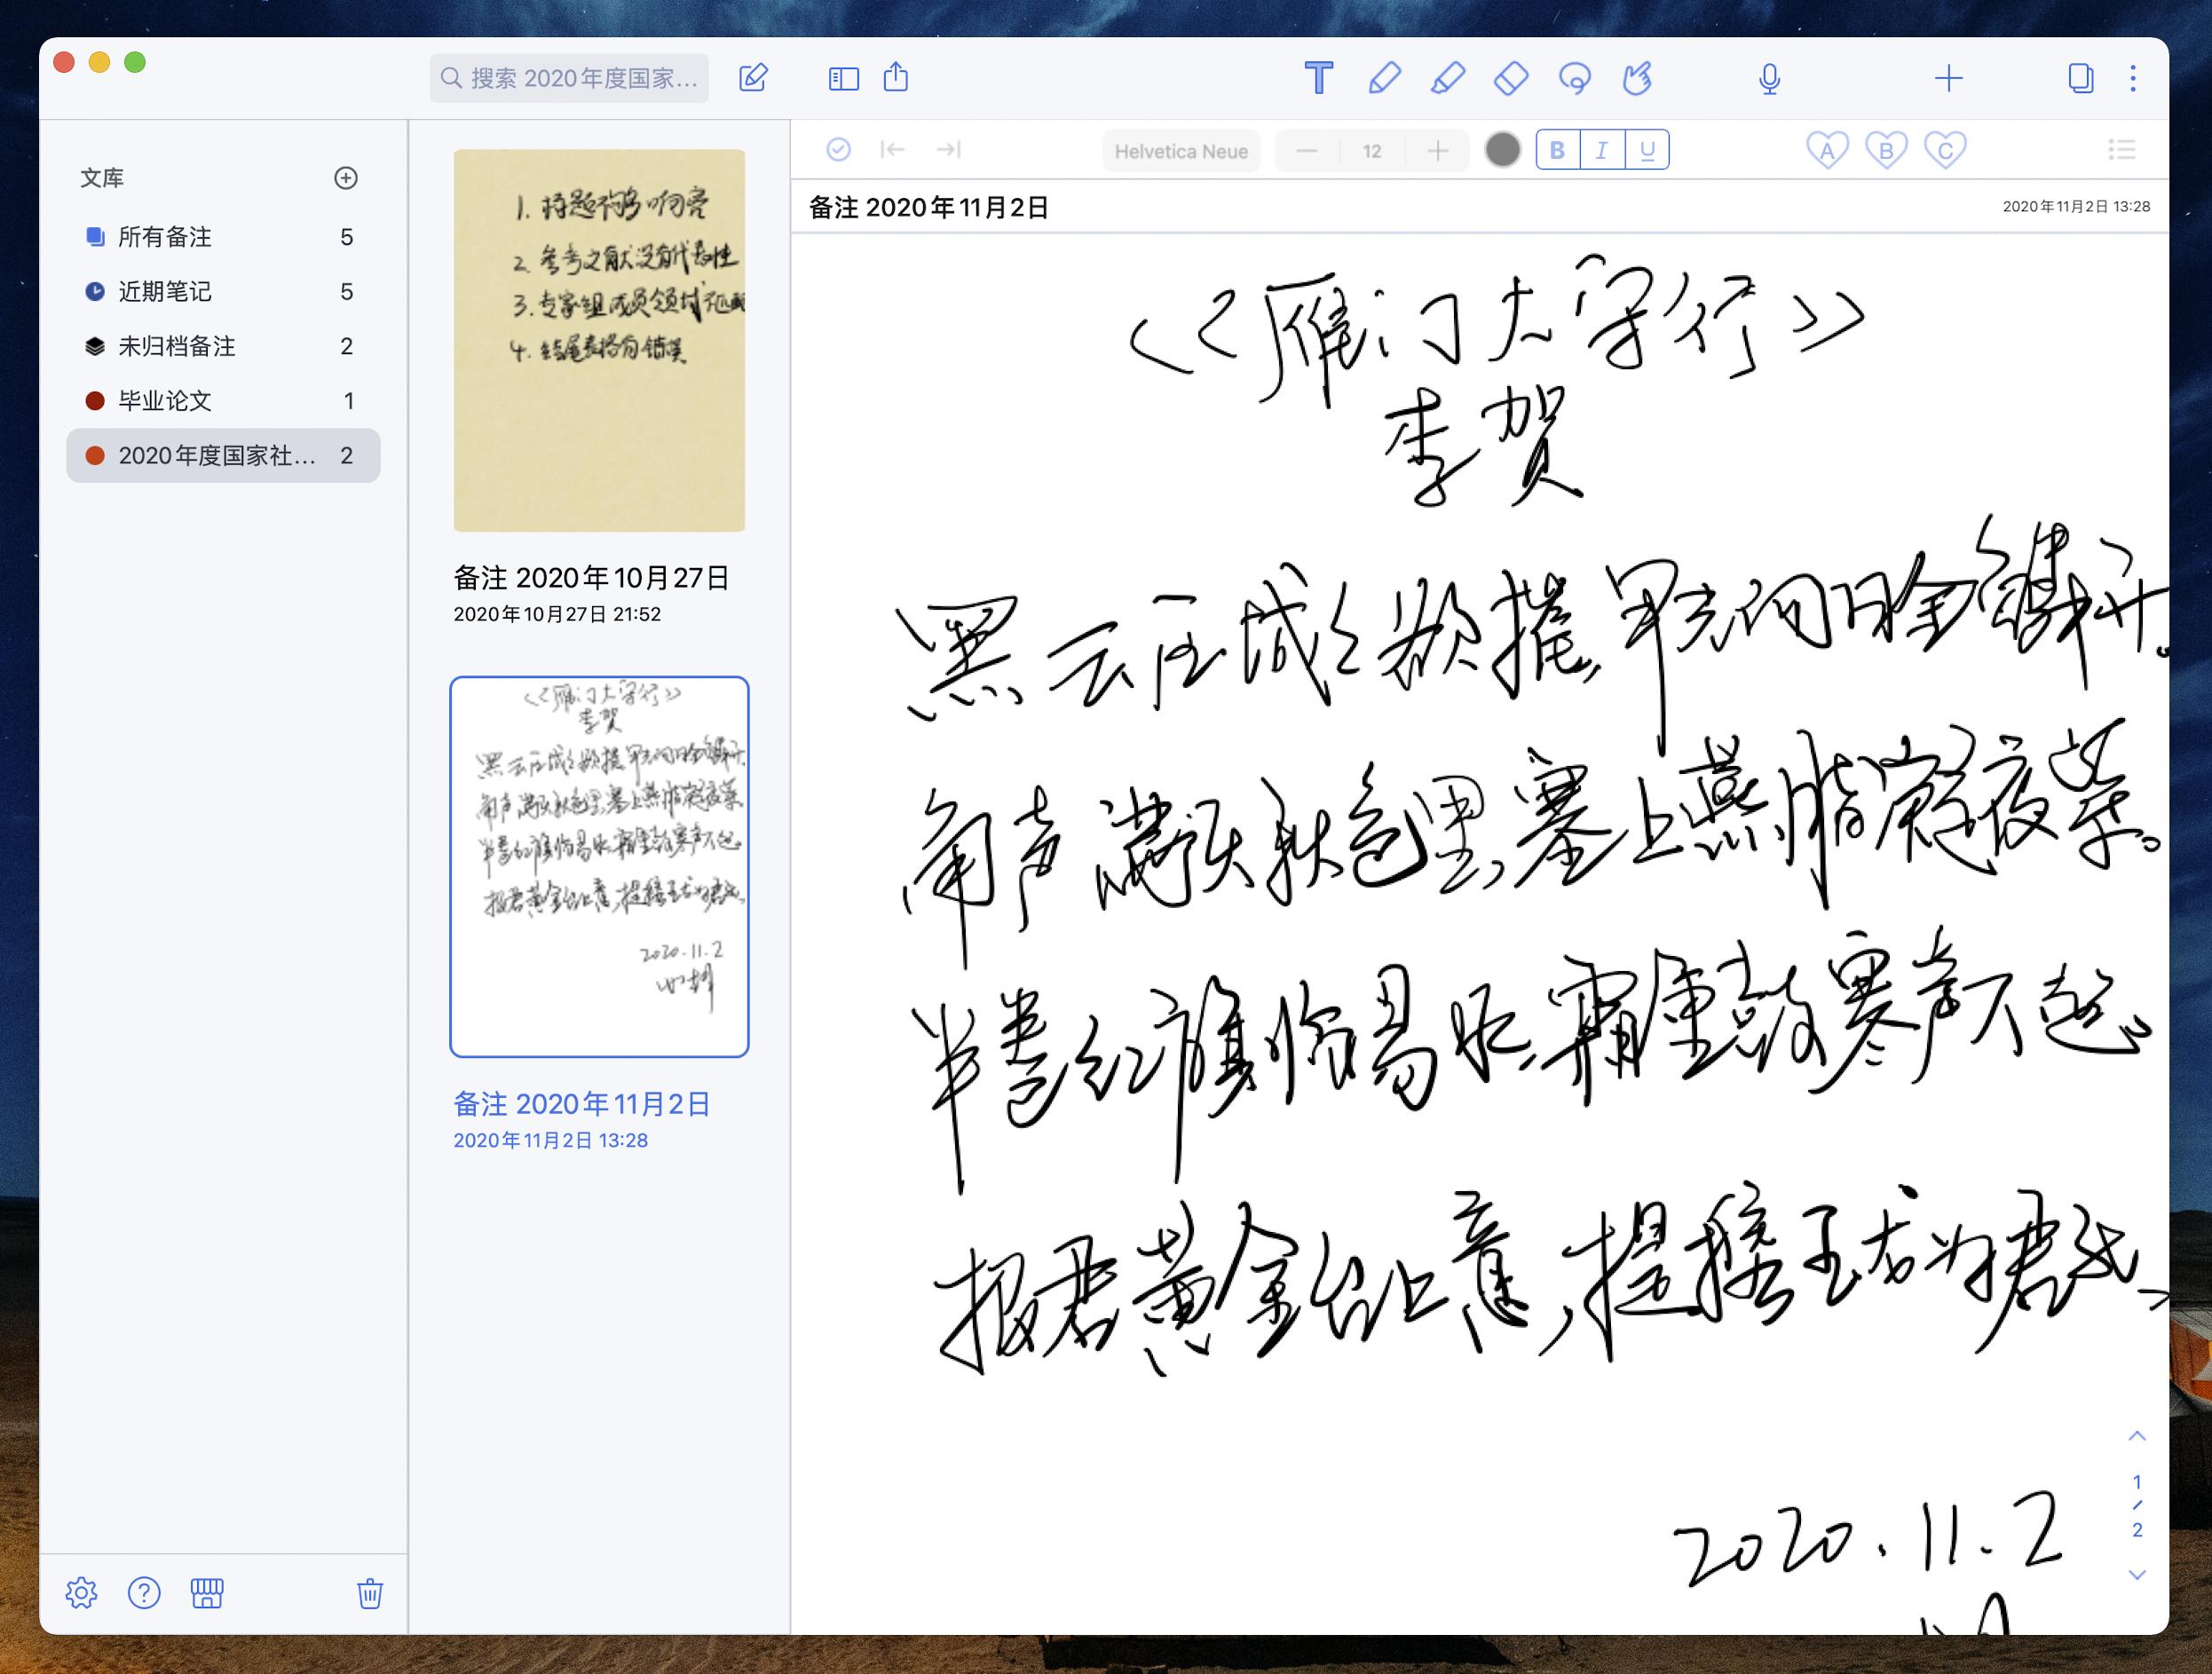 搜索 2020年度国家...
文库
所有备注 5
近期笔记 5
未归档备注 2
毕业论文 1
2020年度国家社... 2
1. 标题不够响亮
2. 参考文献没有代表性
3. 专家组成员领域不匹配
4. 结尾表格有错误
备注 2020年10月27日
2020年10月27日 21:52
《雁门太守行》
李贺
黑云压城城欲摧,甲光向日金鳞开。
角声满天秋色里,塞上燕脂凝夜紫。
半卷红旗临易水,霜重鼓寒声不起。
报君黄金台上意,提携玉龙为君死。
2020.11.2
备注 2020年11月2日
2020年11月2日 13:28
Helvetica Neue
12
B I U
A B C
备注 2020年11月2日
2020年11月2日 13:28
《雁门太守行》
李贺
黑云压城城欲摧,甲光向日金鳞开。
角声满天秋色里,塞上燕脂凝夜紫。
半卷红旗临易水,霜重鼓寒声不起。
报君黄金台上意,提携玉龙为君死
2020.11.2
1
/
2